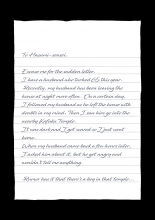 To Hasumi-sensei.
Excuse me for the sudden letter.
I have a husband who turned this year.
Recently, my husband has been leaving the
house at night more often. On a certain day,
I followed my husband as he left the house with
doubts in my mind. Then I saw him go into the
nearby Temple.
It was dark and I got scared so I just went
home.
When my husband came back a few hours later,
I asked him about it, but he got angry and
wouldn't tell me anything.
Rumor has it that there's a boy in that temple...